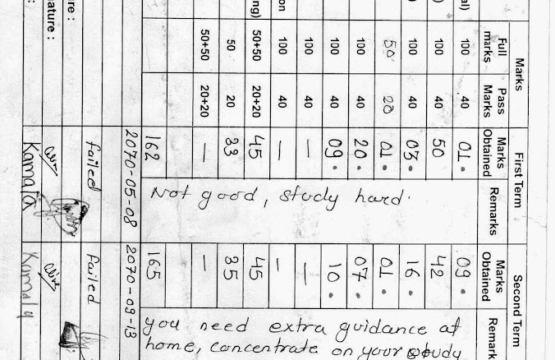 Marks First Term Second Term
Full marks Pass Marks Marks Obtained Remarks Marks Obtained Remark
al) 100 40 01. 09.
) 100 40 50 42
) 100 40 03. 16.
50 20 01. 01.
100 40 20. 07.
100 40 09. 10.
100 40 — —
on 100 40 — —
ng) 50+50 20+20 45 45
50 20 33 35
50+50 20+20 — —
162 165
2070-05-08 2070-09-13
failed failed
re :
ature :
Kamala Kamala
Not good, study hard.
you need extra guidance at
home, concentrate on your study